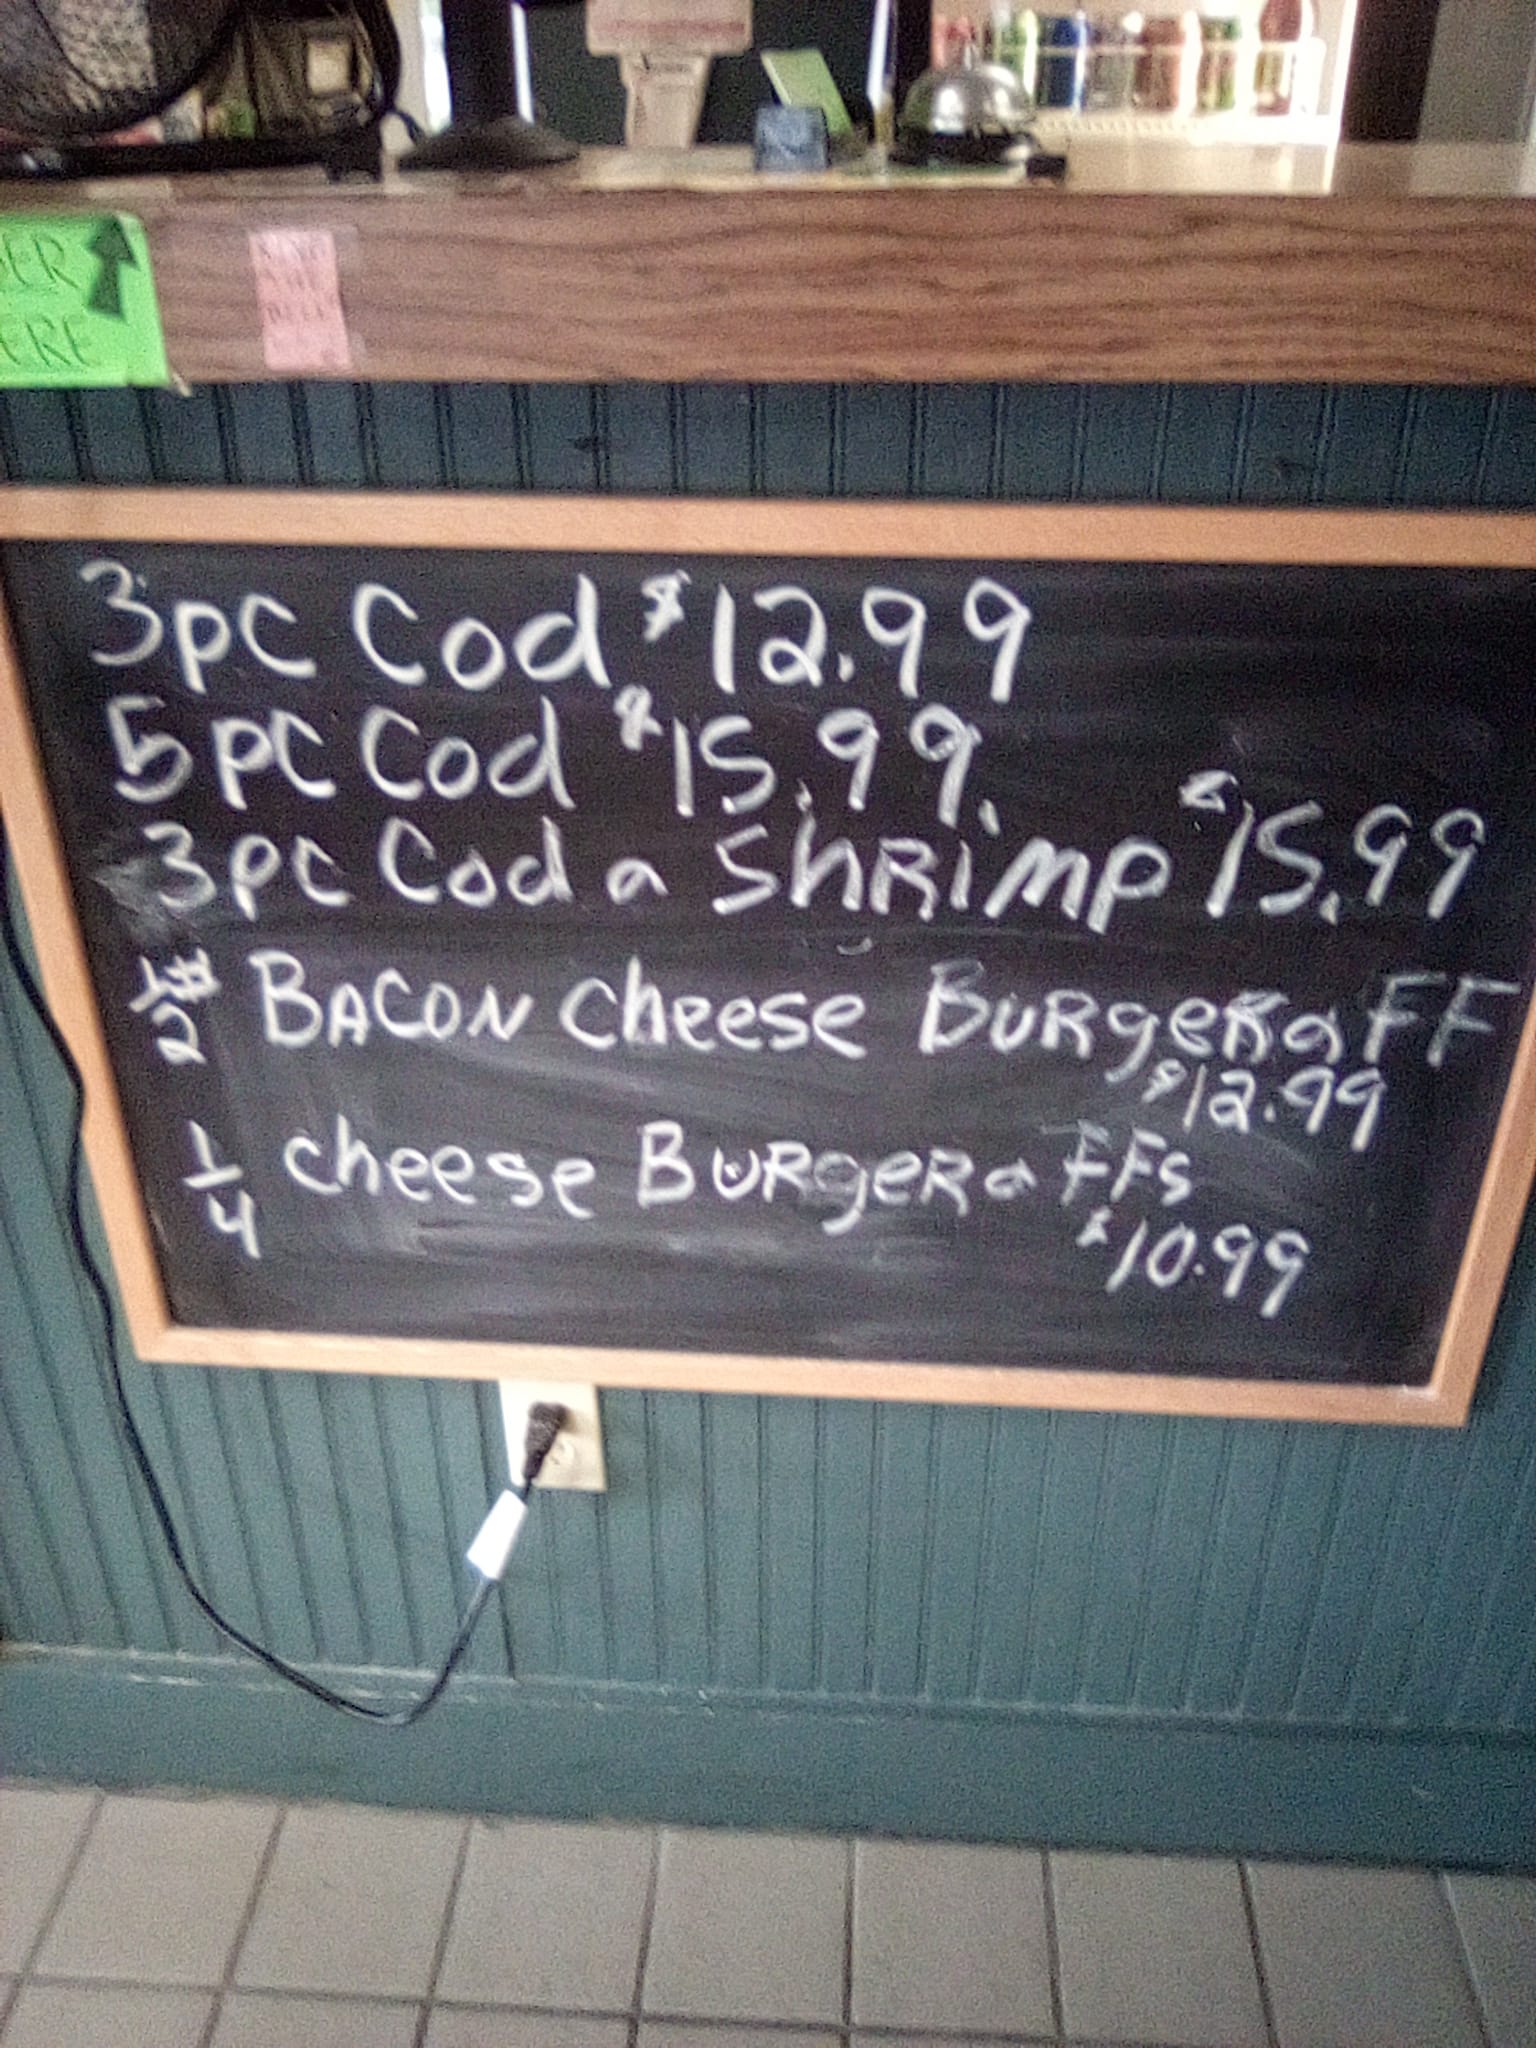 DER
ERE
3pc Cod $12.99
5pc Cod $15.99.
3pc Cod a ShRimp $15.99
1/2# BACON cheese BURgeR a FF
$12.99
1/4 cheese BURgeR a FFs
$10.99